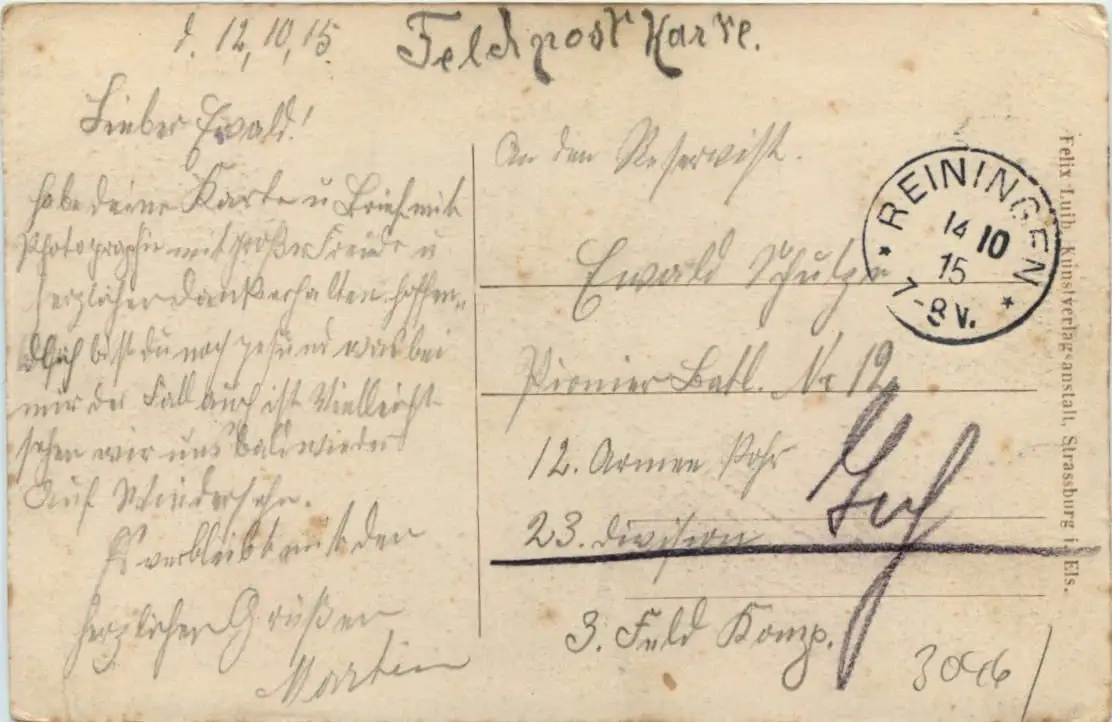 d. 12,10,15.
Feldpost Karte.
Lieber Ewald!
habe deine Karte u Brief mit
Photographie mit großer Freude u
herzlichen Dank erhalten hoffen-
dlich bist du noch gesund was bei
mir der Fall auch ist Vielleicht
sehen wir uns bald wieder
Auf Wiedersehn.
Es verbleibt mit den
herzlichen Grüßen
Martin
An den Reservist.
Ewald Schulze
Pionier Batl. Nr 12
12. Armee
23. Division
3. Feld Komp.
REININGEN
14 10
15
7-8 V.
3046
Felix Luib, Kunstverlagsanstalt, Strassburg i. Els.